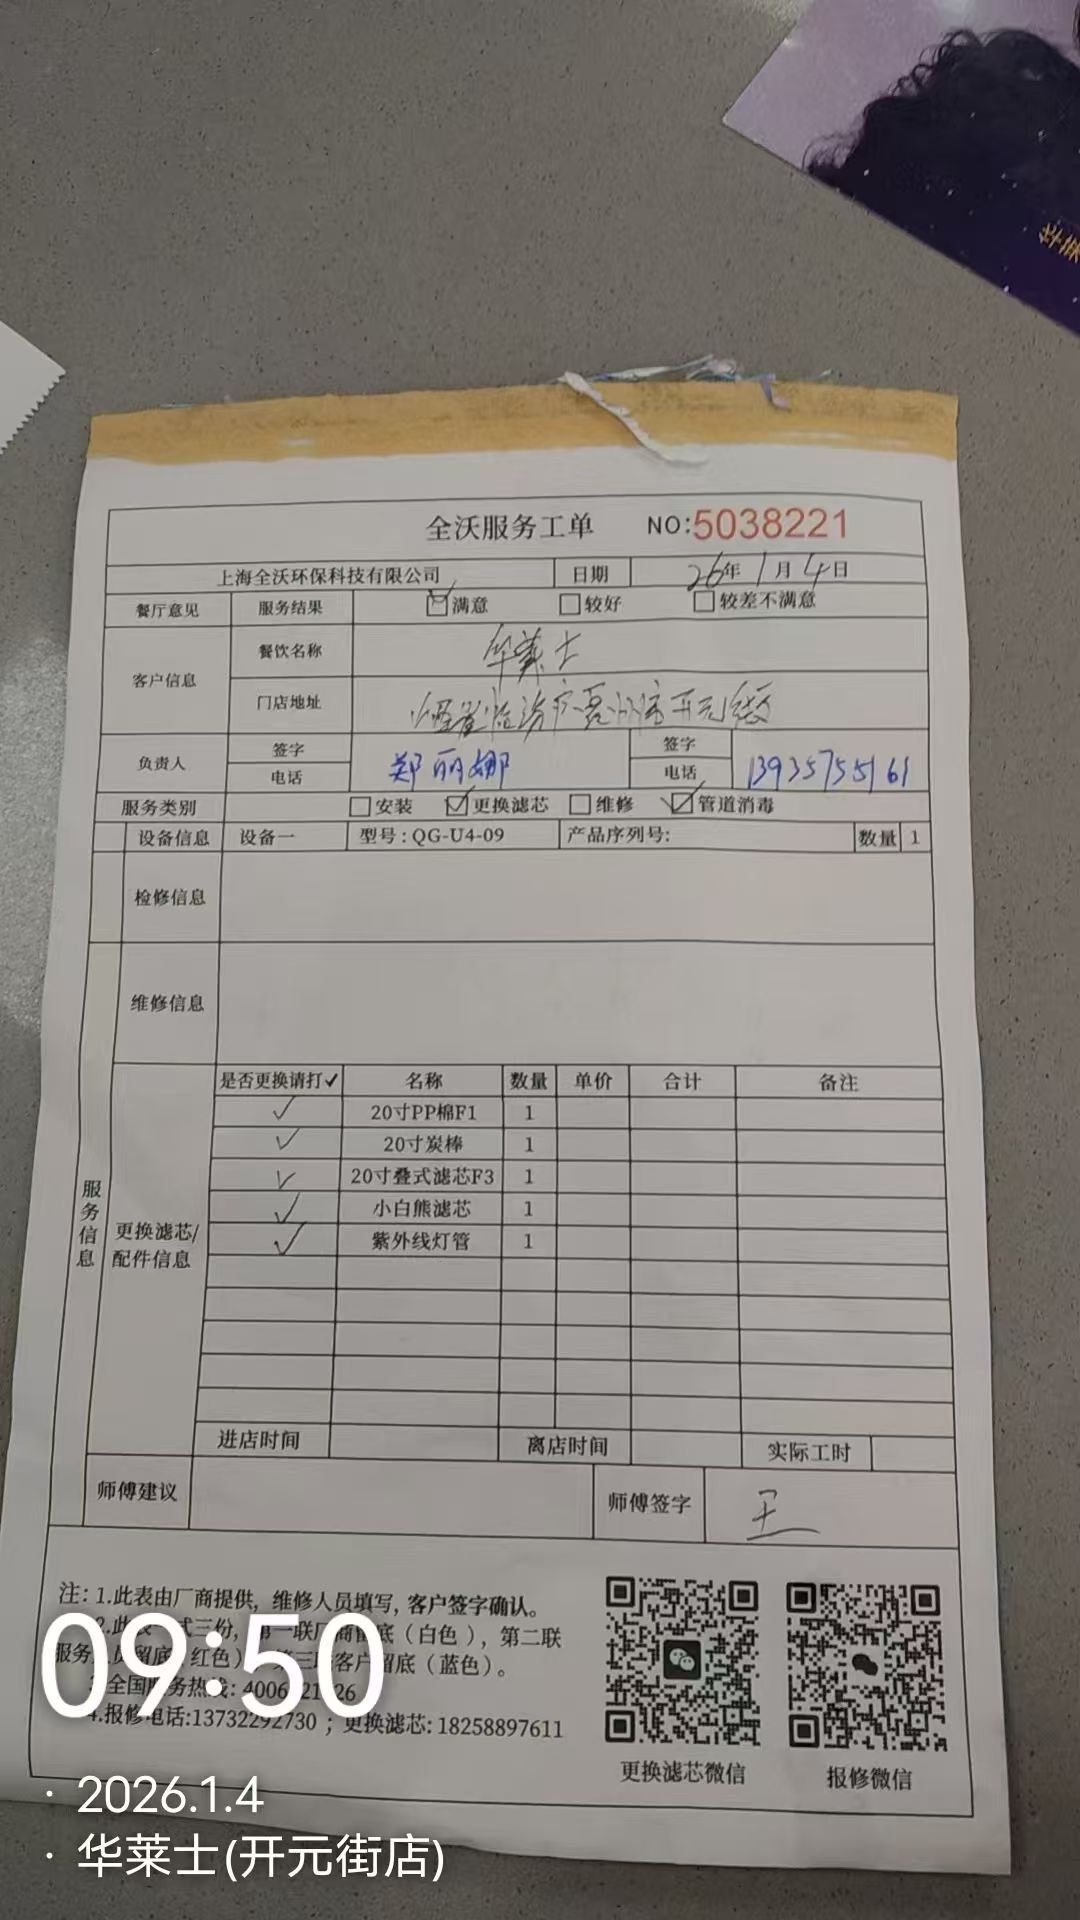 华莱
全沃服务工单 NO:5038221
上海全沃环保科技有限公司 日期 26年1月4日
餐厅意见 服务结果 满意 较好 较差不满意
客户信息 餐饮名称 华莱士
门店地址 山西省临汾市霍州市开元街
负责人 签字 电话 郑丽娜 签字 电话 13935755161
服务类别 安装 ✓更换滤芯 维修 ✓管道消毒
设备信息 设备一 型号:QG-U4-09 产品序列号: 数量 1
检修信息
维修信息
服务信息
更换滤芯/配件信息
是否更换请打✓ 名称 数量 单价 合计 备注
✓ 20寸PP棉F1 1
✓ 20寸炭棒 1
✓ 20寸叠式滤芯F3 1
✓ 小白熊滤芯 1
✓ 紫外线灯管 1
进店时间 离店时间 实际工时
师傅建议 师傅签字 王
注: 1.此表由厂商提供, 维修人员填写, 客户签字确认。
2.此表 式三份, 第一联厂商留底(白色), 第二联
服务人员留底(红色), 第三联客户留底(蓝色)。
3.全国服务热线: 4006 21 26
4.报修电话:13732292730 ; 更换滤芯: 18258897611
更换滤芯微信 报修微信
09:50
· 2026.1.4
· 华莱士(开元街店)